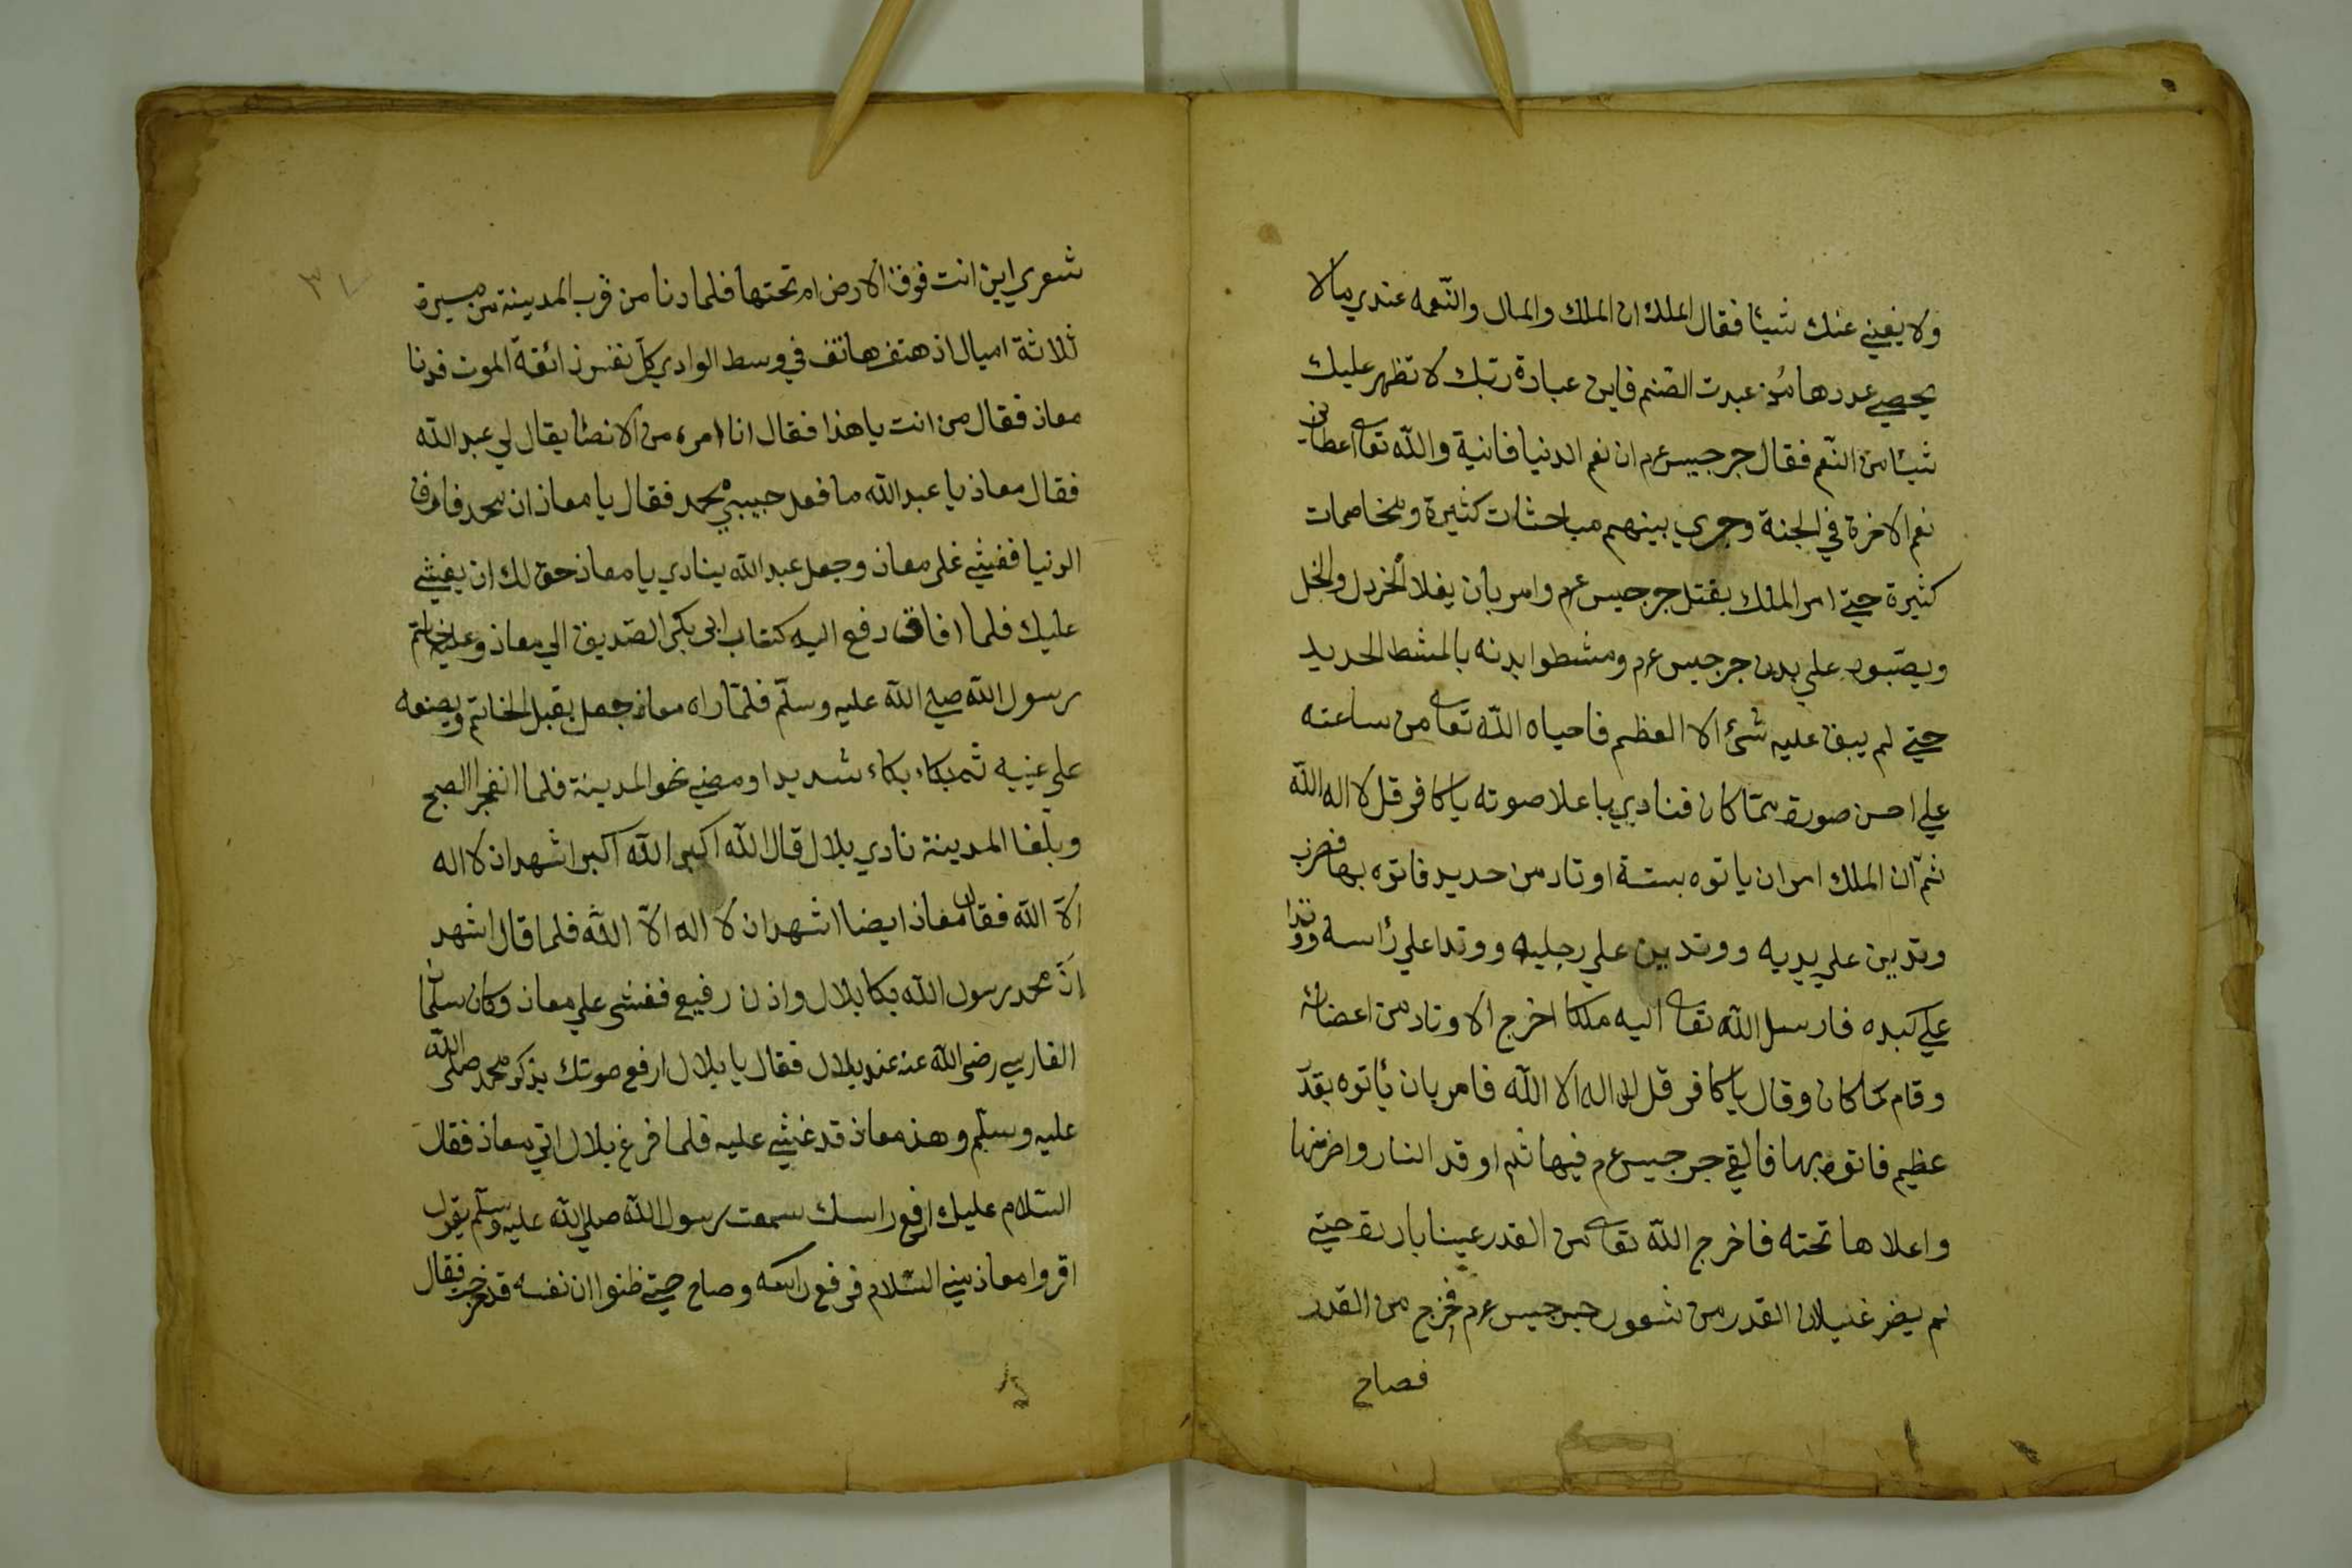 ولا يغني عنك شيئا فقال الملك ان الملك والمال والنّعمه عندي مالا
يحصي عددها مُن عبدت الصّنم فاين عبادة ربّك لا تظهر عليك
شيئا من النّعم فقال جرجيس عم ان نعم الدنيا فانية واللّه تعا اعطانى
نعم الاخرة في الجنة وجري بينهم مباحثات كثيرة ومخاصمات
كثيرة حتي امر الملك بقتل جرجيس عم وامر بان يغلا الخردل والخل
ويصّبون علي بدن جرجيس عم ومشطوا بدنه بالمشط الحديد
حتي لم يبق عليه شئ الا العظم فاحياه اللّه تعا من ساعته
علي احسن صورة ممّا كان فنادي باعلا صوته يا كافر قل لا اله اللّه
ثمّ ان الملك امر ان ياتوه بستة اوتاد من حديد فاتوه بها فضرب
وتدين علي يديه ووتدين علي رجليه ووتدا علي رأسه ووتدا
علي كبده فارسل اللّه تعا اليه ملكا اخرج الاوتاد من اعضائه
وقام كما كان وقال يا كافر قل لا اله الا اللّه فامر بان يأتوه بقدر
عظيم فاتوه بها فالقي جرجيس عم فيها ثم اوقد النار واضرمها
واعلاها تحته فاخرج اللّه تعا من القدر عينا باردة حتي
لم يضر غليان القدر من شعور جرجيس عم فخرج من القدر
فصاح
شعري اين انت فوق الارض ام تحتها فلما دنا من قرب المدينة من مسيرة
ثلاثة اميال اذ هتف هاتف في وسط الوادي كلّ نفس ذائقة الموت فدنا
معاذ فقال من انت يا هذا فقال انا امرء من الانصا يقال لي عبد اللّه
فقال معاذ يا عبد اللّه ما فعل حبيبي محمد فقال يا معاذ ان محمد فارق
الدنيا فغشي علي معاذ وجعل عبد اللّه ينادي يا معاذ حق لك ان يغشي
عليك فلما افاق دفع اليه كتاب ابى بكر الصّديق الي معاذ وعليه خاتم
رسول اللّه صلي اللّه عليه وسلّم فلمّا راه معاذ جعل يقبل الخاتم ويضعه
علي عينيه ثم بكاء بكاء شديدا ومضي نحو المدينة فلما انفجر الصبح
وبلغا المدينة نادي بلال قال اللّه اكبر اللّه اكبر اشهد ان لا اله
الاّ اللّه فقال معاذ ايضا اشهد ان لا اله الاّ اللّه فلما قال اشهد
انّ محمد رسول اللّه بكا بلال واذن رفيع فغشى علي معاذ وكان سلمان
الفارسي رضى اللّه عنه عند بلال فقال يا بلال ارفع صوتك بذكر محمد صلى اللّه
عليه وسلّم وهذ معاذ قد غشي عليه فلما فرغ بلال اتي معاذ فقال
السّلام عليك ارفع راسك سمعت رسول اللّه صلي اللّه عليه وسلّم يقول
اقروا معاذ مني السّلام فرفع راسه وصاح حتي ظنوا ان نفسه قد خرجت فقال